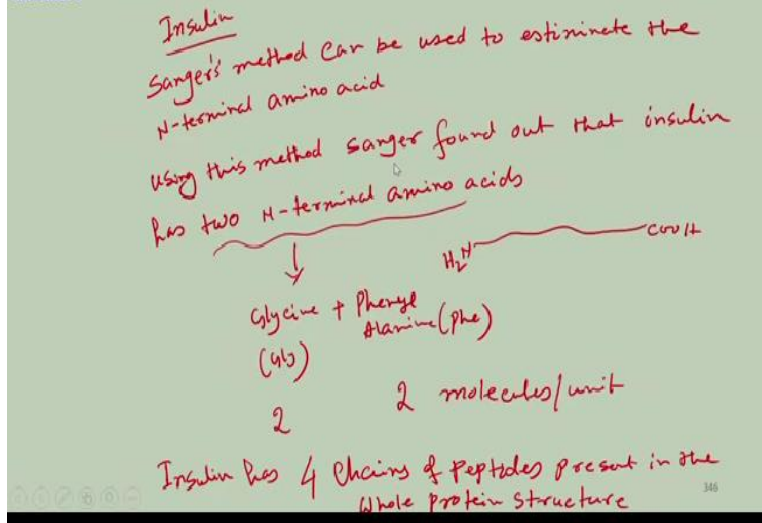 Insulin
Sanger's method can be used to estiminate the
N-terminal amino acid
using this method sanger found out that insulin
has two N-terminal amino acids
H₂N COOH
Glycine + Phenyl
Alanine (Phe)
(Gly)
2 2 molecules/unit
Insulin has 4 chains of peptides present in the
whole protein structure
346